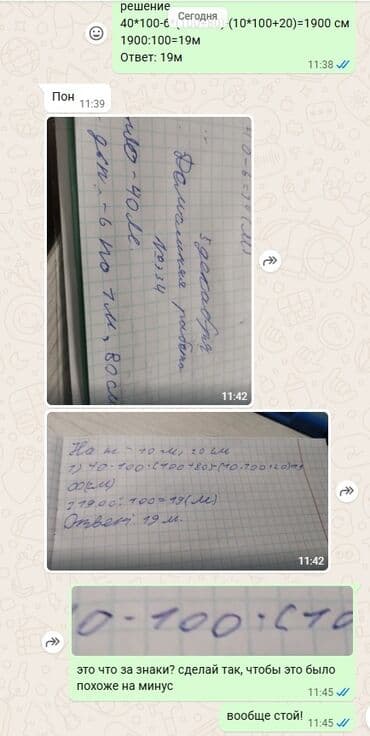 решение
Сегодня
40*100-6*(100+80)-(10*100+20)=1900 см
1900:100=19м
Ответ: 19м
11:38
Пон
11:39
5 декабря
Домашняя работа
№334
- 40 м.
- 6 по 1 м, 80 см
11:42
На - 10 м, 20 см
1) 40·100·(100+80)-(10·100+20)=19
00(см)
2) 1900:100=19(м)
Ответ: 19 м.
11:42
0-100·(10
это что за знаки? сделай так, чтобы это было
похоже на минус
11:45
вообще стой!
11:45